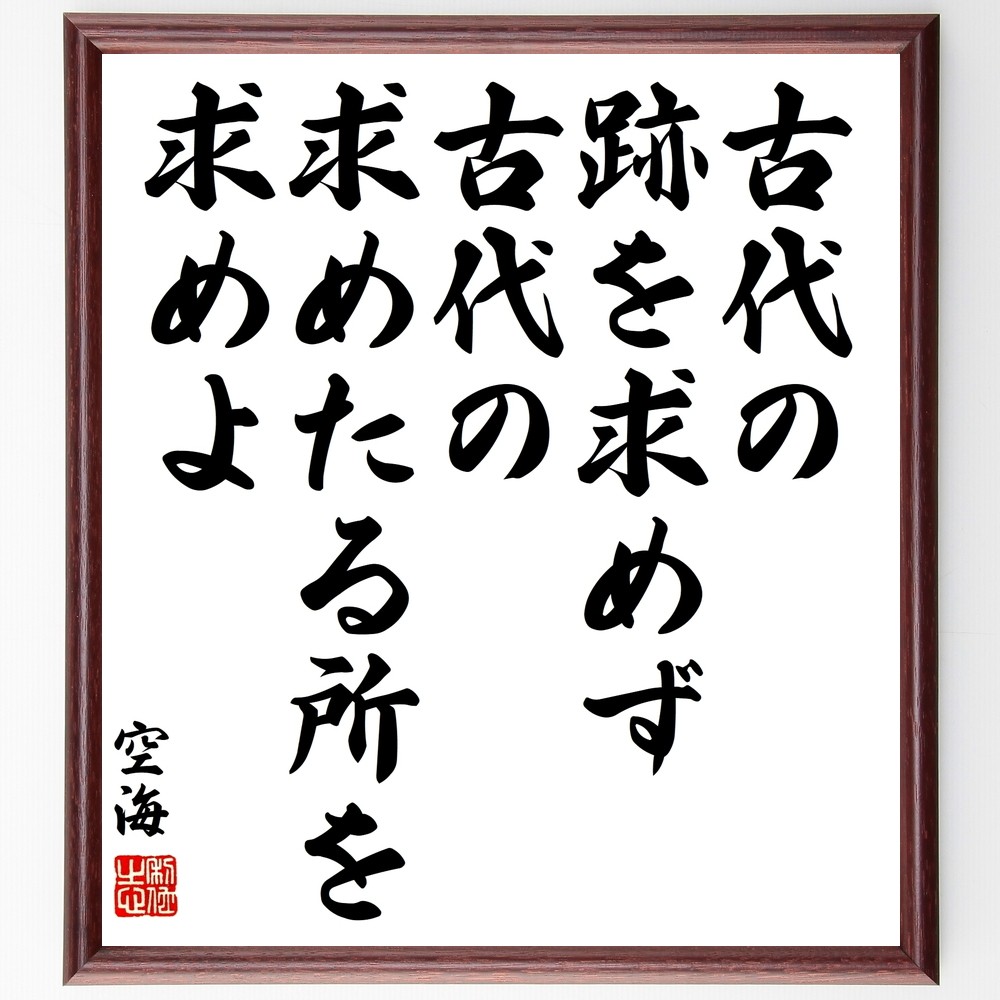 古代の
跡を求めず
古代の
求めたる所を
求めよ
空海